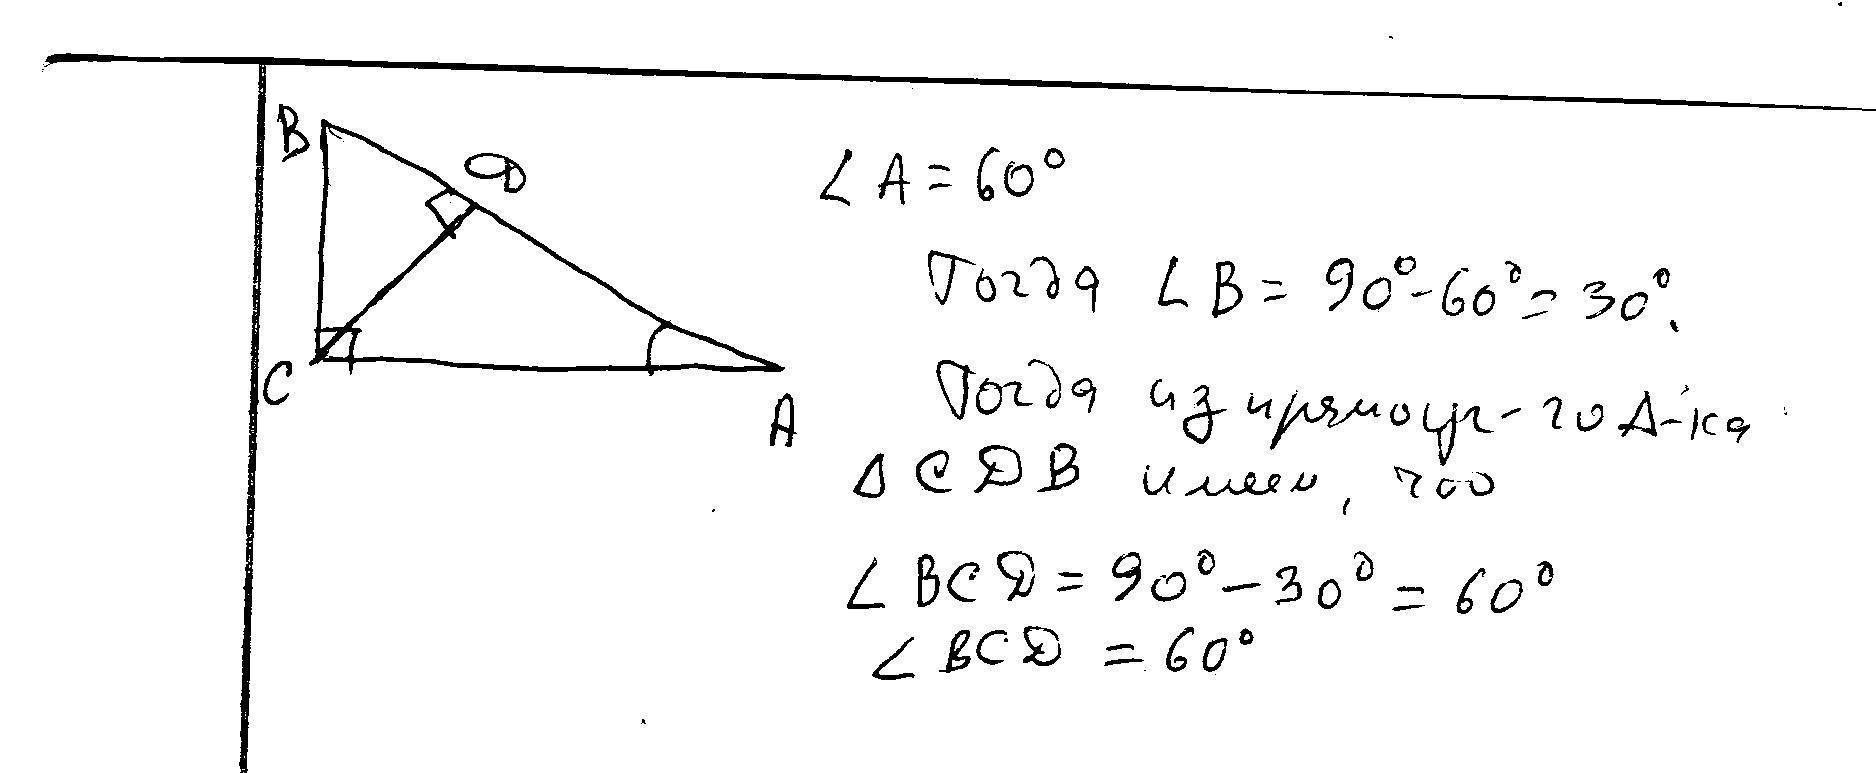 B
D
C
A
∠A = 60°
Тогда ∠B = 90° - 60° = 30°.
Тогда из прямоуг-го Δ-ка
Δ CDB имеем, что
∠BCD = 90° - 30° = 60°
∠BCD = 60°